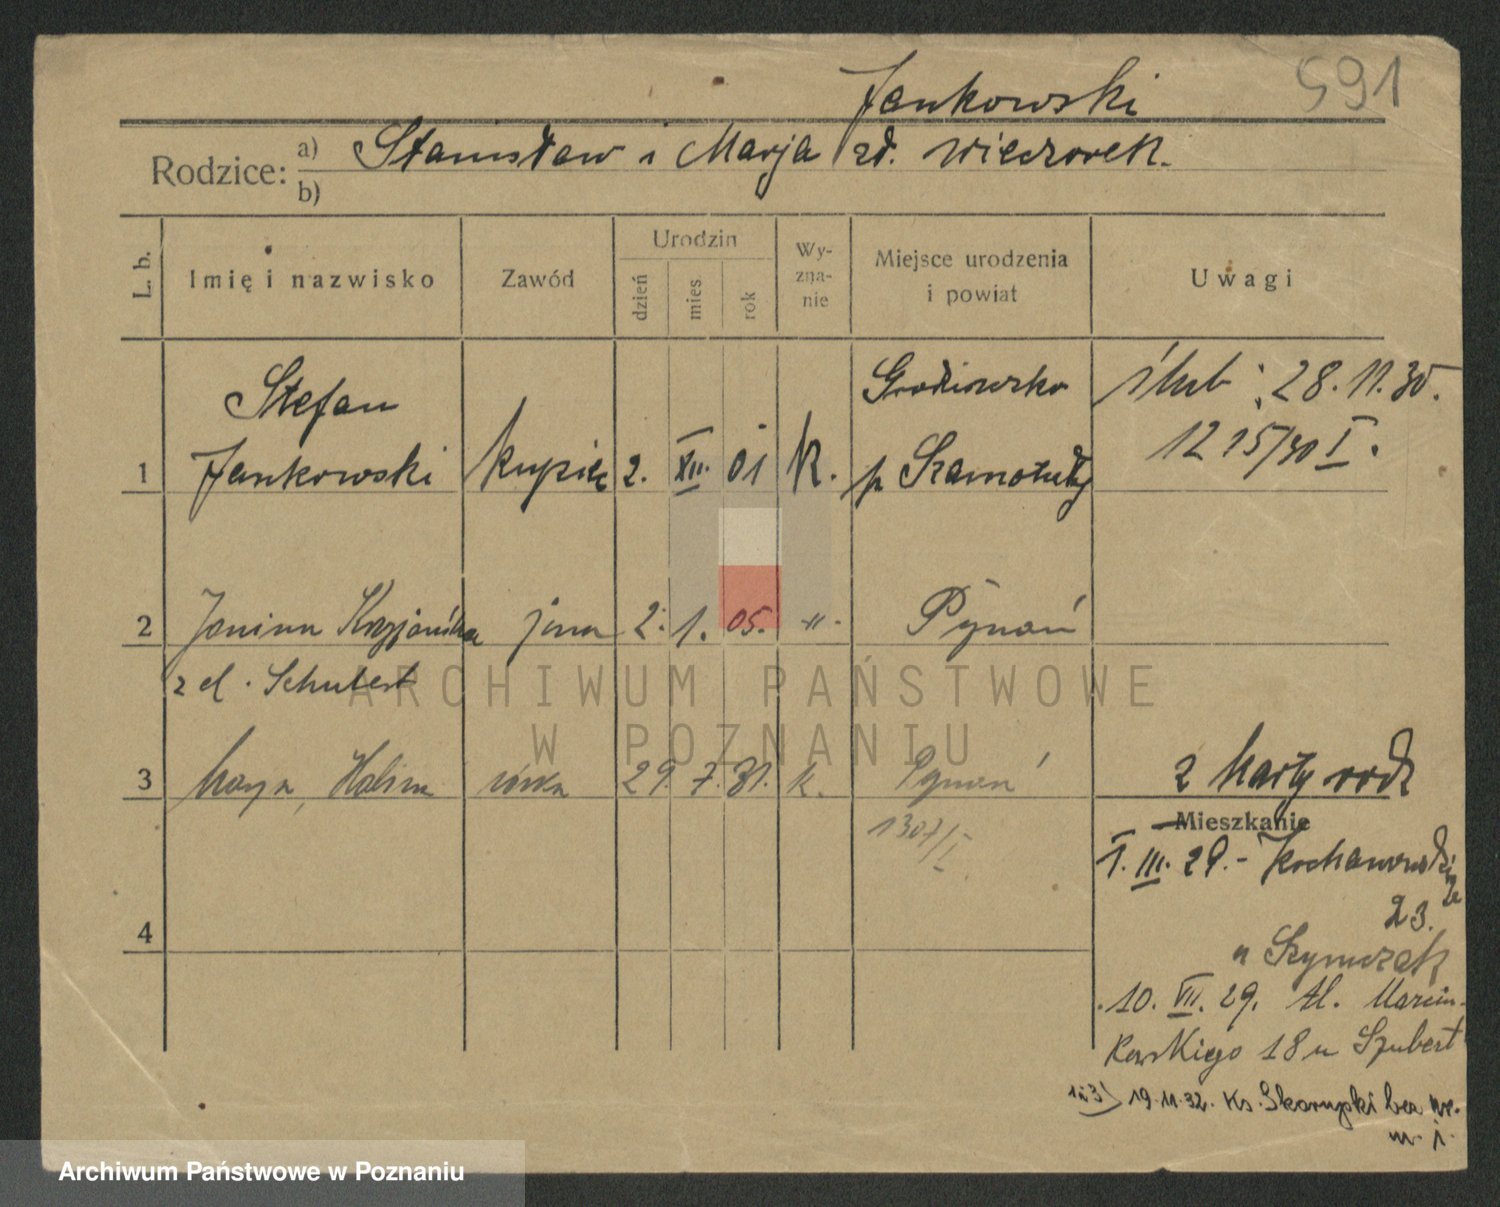 591
Jankowski
Rodzice: a) Stanisław i Marja zd. Wieczorek.
b)
L. b.
Imię i nazwisko
Zawód
Urodzin
dzień
mies
rok
Wy-
zna-
nie
Miejsce urodzenia
i powiat
Uwagi
1
Stefan
Jankowski
kupiec
2. XII. 01
k.
p Szamotuły
ślub: 28.11.30.
1215/30 I.
2
Janina
zd. Schubert
żona
2. 1. 05.
-"-
Poznań
ARCHIWUM PAŃSTWOWE
W POZNANIU
3
Marya, Halina
córka
29. 7. 31.
k.
Poznań
1307/I
2 karty rodz
Mieszkanie
1. III. 29.-
23.
u Szymczak
10. VII. 29. Al. Marcin-
kowskiego 18 u Szubert
19.11.32. Ks. Skorupki bez
m. i.
4
Archiwum Państwowe w Poznaniu